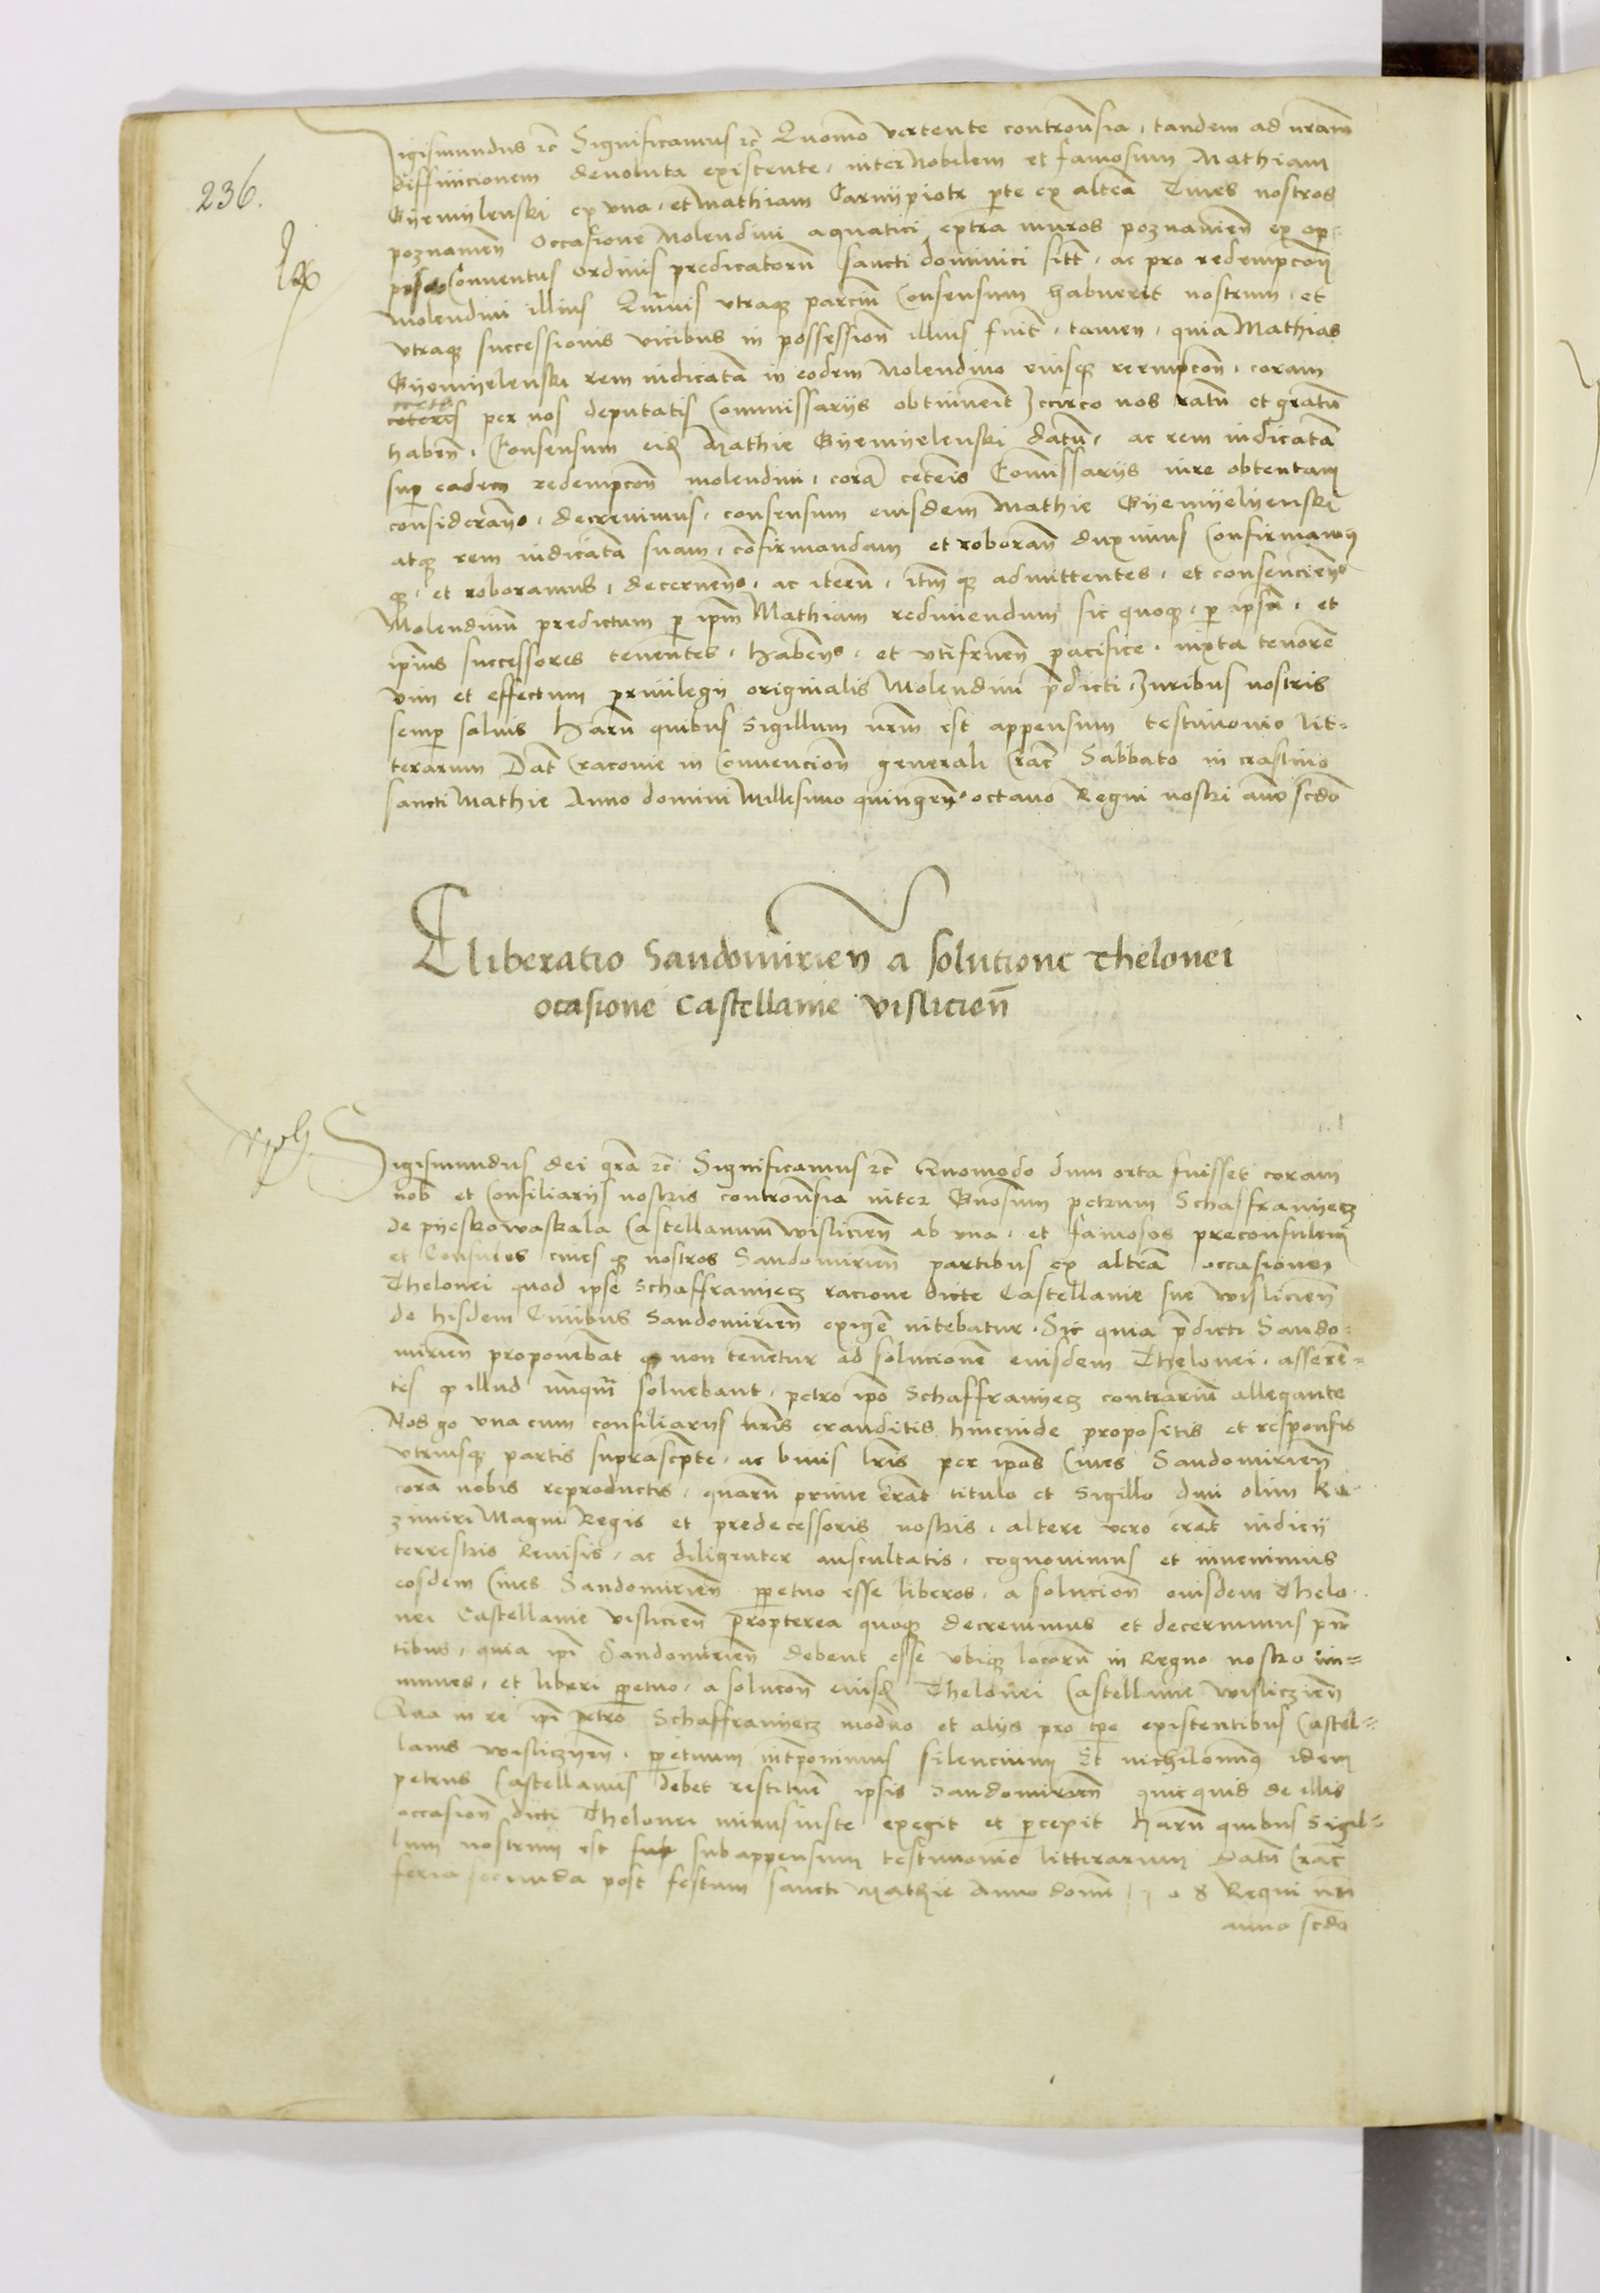 236.
Sigismundus etc Significamus etc Quomodo vertente controuersia, tandem ad nram
diffinicionem deuoluta existente, inter Nobilem et famosum Mathiam
Gyemylenski ex vna, et Mathiam Carnypiotr pte ex altera Ciues nostros
poznanien Occasione Molendini aquatici extra muros poznanien ex op-
Conuentus ordinis predicatorum sancti dominici sitt, ac pro redempcon
Molendini illius Quis vtraque parcium Consensum habuerit nostrum, et
vtraque successionis vicibus in possession illius fuit, tamen, quia Mathias
Gyemyelenski rem iudicata in eodem Molendino eiusque reempcon, coram
ceteris per nos deputatis Commissarijs obtinuerit Iccirco nos ratu et gratu
haben, Consensum eid Mathie Gyemyelenski datu, ac rem iudicata
sup eadem redempcon molendini, cora ceteris Comissarijs iure obtentam
consideran, decreuimus, consensum eiusdem Mathie Gyemyelyenski
atque rem iudicata suam, confirmandam et roboran duximus Confirmamus
que, et roboramus, decernen, ac iteru, itm que admittentes, et consencien
Molendinu predictum p ipm Mathiam redimendum sic quoque, p ipsu, et
ipius successores tenentes, haben, et vtifruen pacifice, iuxta tenore
vim et effectum priuilegij originalis Molendini pdicti, Iuribus nostris
semp saluis Haru quibus Sigillum nrm est appensum testimonio lit-
terarum Dat Cracouie in Conuencion generali Crac Sabbato in crastino
sancti Mathie Anno domini Millesimo quingen octauo Regni nostri anno scdo
Liberatio Sandomirien a solutione Thelonei
ocasione Castellanie Vislicien
Sigismundus dei gra etc Significamus etc Quomodo dum orta fuisset coram
nob et Consiliarijs nostris controuersia inter Gnosum petrum Schaffranyecz
de pyeskowaskala Castellanum Wislicien ab vna, et famosos preconsulem
et Consules ciues que nostros Sandomirien partibus ex altera occasionem
Thelonei quod ipse Schaffranyecz racione dicte Castellanie sue Wislicien
de hisdem Ciuibus Sandomirien exige nitebatur, Sic quia pdicti Sando-
mirien proponebat q non tenetur ad solucione eiusdem Thelonei, asseren-
tes q illud nuqm soluebant, petro ipo Schaffranyecz contrariu allegante
Nos go vna cum consiliarijs nris exauditis hincinde propositis et responsis
vtriusque partis suprascpte, ac binis lris per ipos Ciues Sandomirien
cora nobis reproductis, quaru prime erat titulo et sigillo dni olim Ka-
zimiri Magni Regis et predecessoris nostris, altere vero erat iudicij
terrestris Reuisis, ac diligenter auscultatis, cognouimus et inuenimus
eosdem Ciues Sandomirien ppetuo esse liberos, a solucion eiusdem Thelo-
nei Castellanie vislicien Propterea quoque decreuimus et decernimus pn
tibus, quia ipi Sandomirien debent esse vbique locoru in Regno nostro im-
munes, et liberi ppetuo, a solucon eiusd Thelonei Castellanie Wisliczien
Qua in re ipi petro Schaffranyecz moderno et alijs pro tpe existentibus Castel-
lanis wisliczyen, ppetuum imponimus silencium Et nichilominus idem
petrus Castellanus debet restituere ipsis Sandomirien quicquid de illis
occasion dicti Thelonei minusiuste exegit et pcepit Haru quibus Sigil-
lum nostrum est subappensum testimonio litterarum Datu Crac
feria secunda post festum sancti Mathie Anno domini 1508 Regni nri
anno scdo